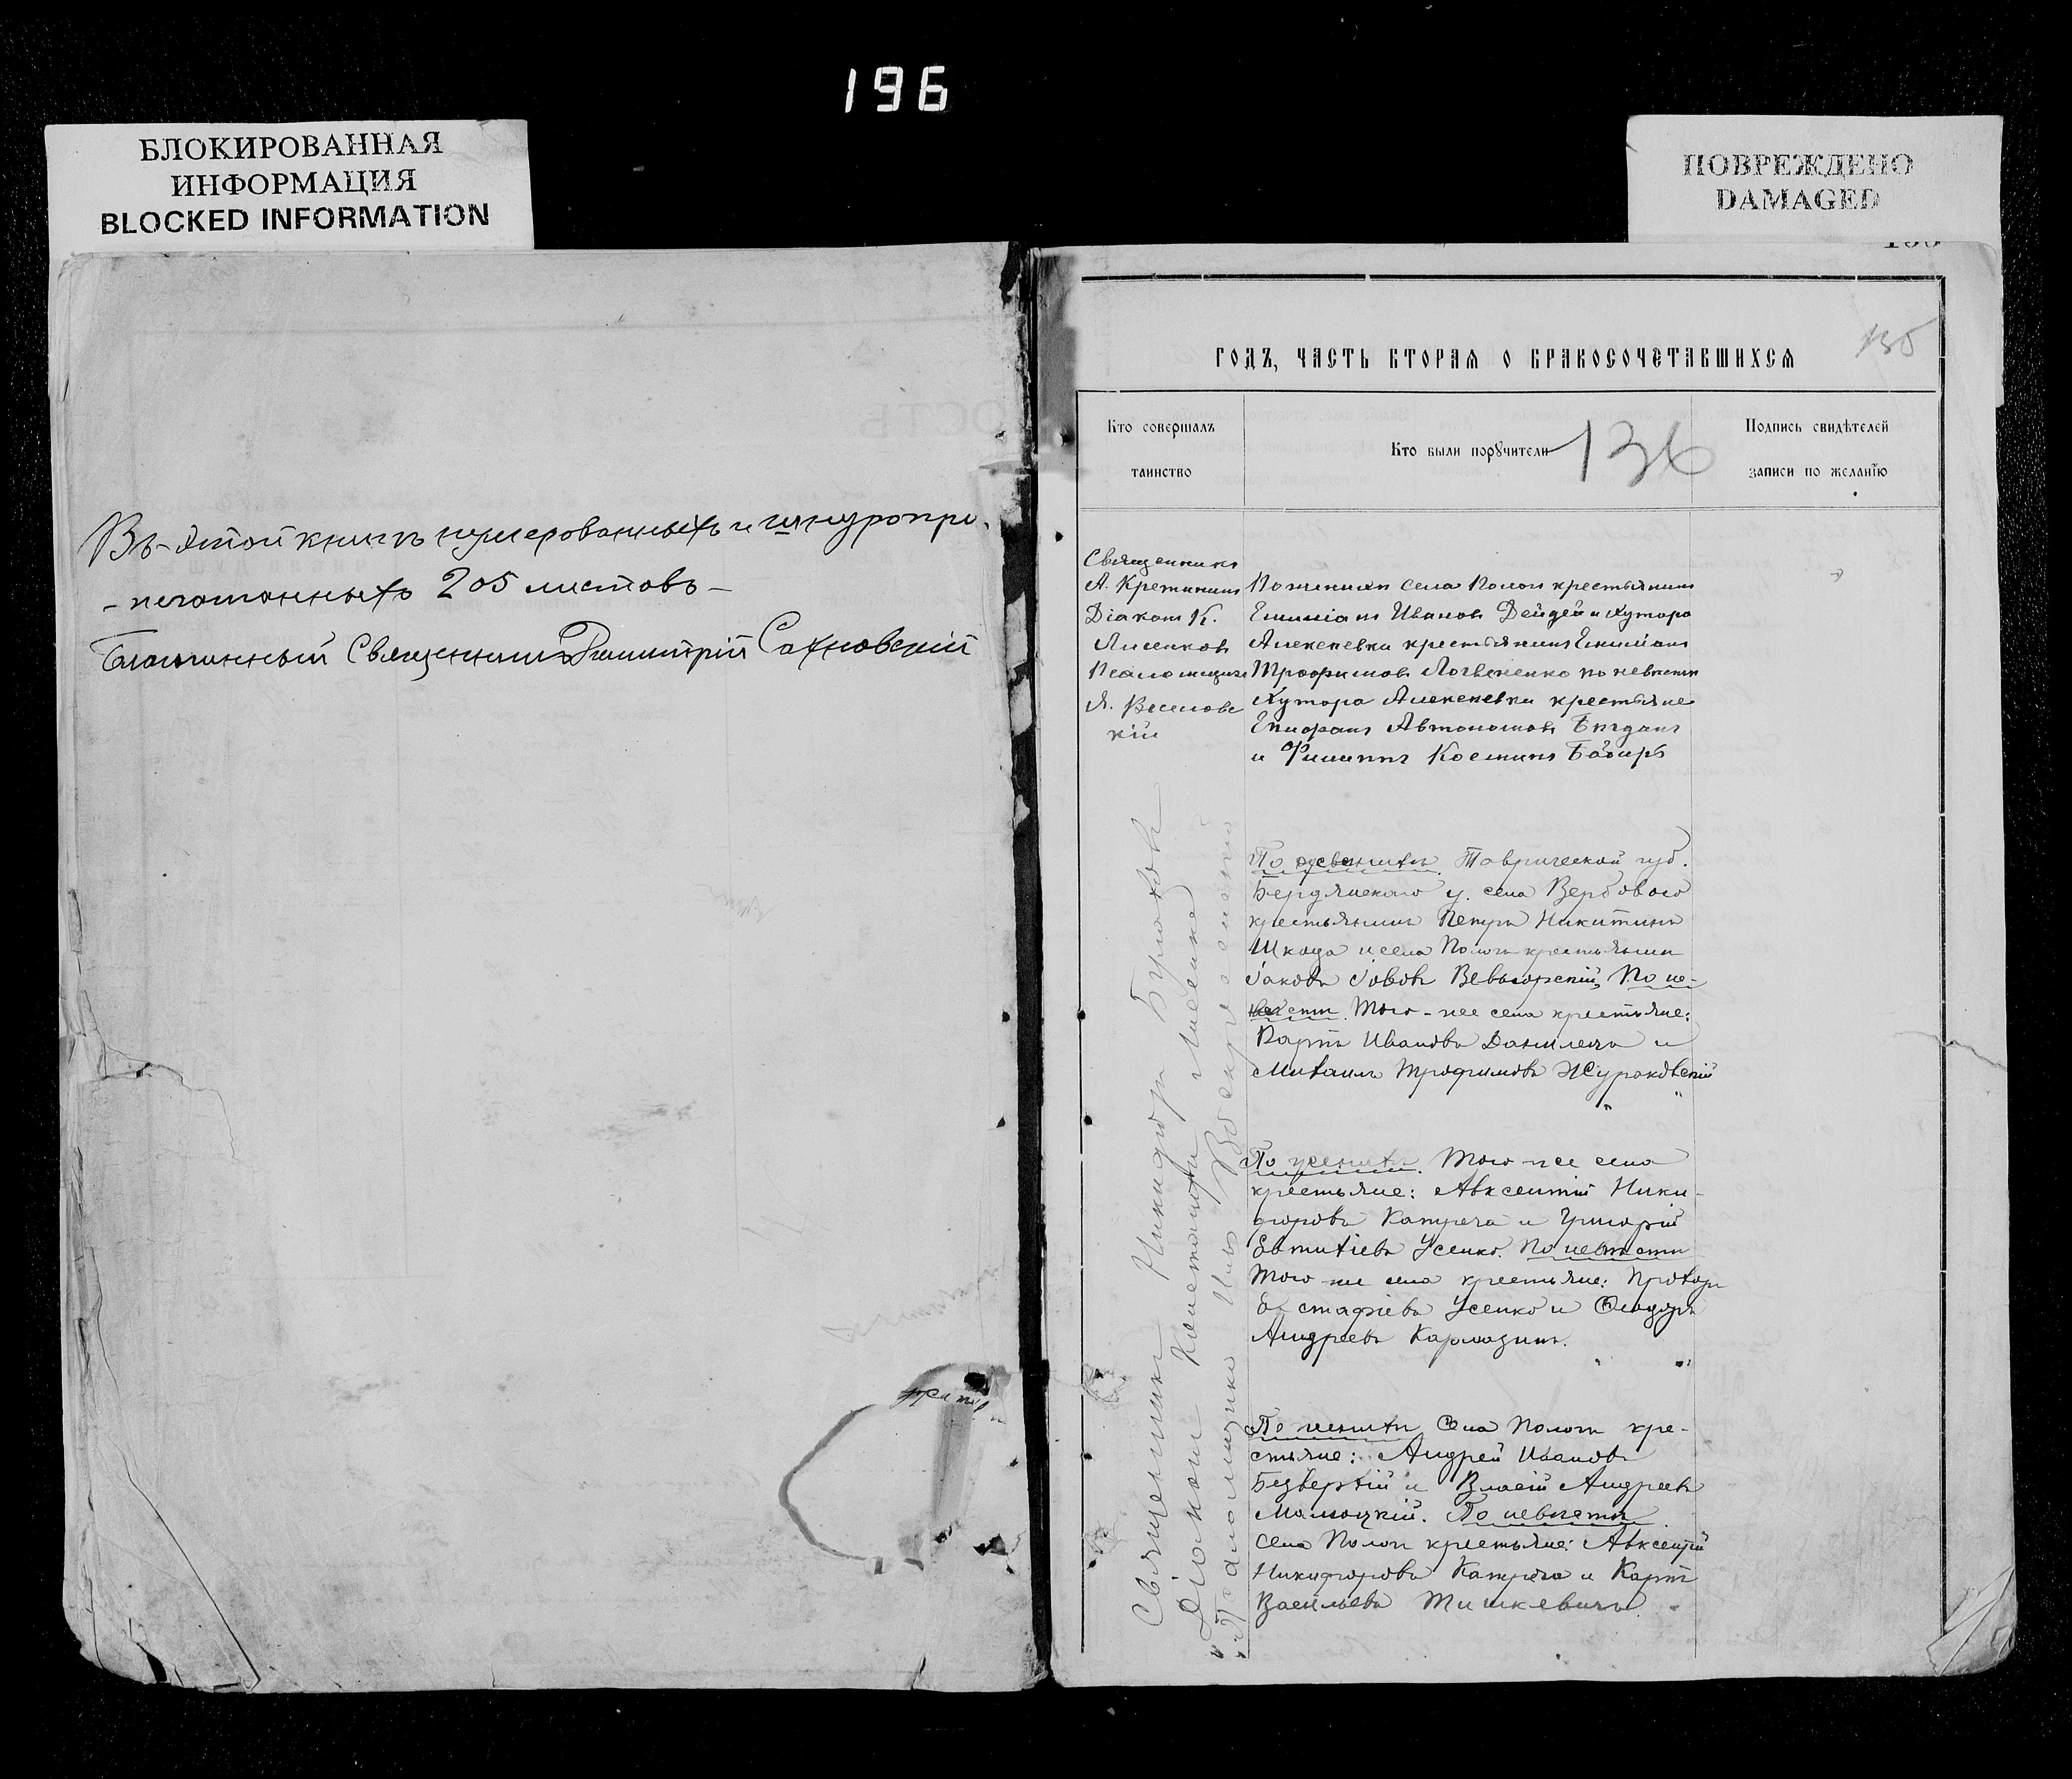 196
БЛОКИРОВАННАЯ
ИНФОРМАЦИЯ
BLOCKED INFORMATION
ПОВРЕЖДЕНО
DAMAGED
Въ этой книгѣ нумерованныхъ и шнуропри-
-печатанныхъ 205 листовъ-
Благочинный Священникъ Димитрій Сахновскій
135
ГОДЪ, ЧАСТЬ ВТОРАЯ О БРАКОСОЧЕТАВШИХСЯ
Кто совершалъ
таинство
Кто были поручители
136
Подпись свидѣтелей
записи по желанію
Священникъ
А. Кретининъ
Діаконъ К.
Лисенковъ
Псаломщикъ
Я. Веселовс
кій
По женихѣ села Пологи крестьянинъ
Емиліанъ Ивановъ Дейдей и хутора
Алексеевки крестьянинъ Емиліанъ
Трофимовъ Логвиненко по невѣстѣ
Хутора Алексеевки крестьяне
Епифанъ Автономовъ Бѣгданъ
и Филиппъ Косминъ Бабирь
Священникъ Никифоръ Булаховъ
Діаконъ Климентій Лисенко
Псаломщикъ
По женихѣ. Таврической губ.
Бердянскаго у. села Вербоваго
крестьянинъ Петръ Никитинъ
Шкода и села Пологи крестьянин
Іаковъ Іововъ Невгорскій, По не-
вѣстѣ. Того-же села крестьяне:
Карпъ Ивановъ Данилечъ и
Михаилъ Трофимовъ Жураковскій
По женихѣ. Того-же села
крестьяне: Авксентій Ники-
форовъ Катреча и Григорій
Евтихіевъ Усенко. По невѣстѣ
Того-же села крестьяне: Прохоръ
Евстафіевъ Усенко и Ѳеодоръ
Андреевъ Кармазинъ.
По женихѣ Села Пологи кре-
стьяне: Андрей Ивановъ
Безверхій и Власій Андреевъ
Малюцкій. По невѣстѣ
села Пологи крестьяне: Авксентій
Никифоровъ Катреча и Карпъ
Васильевъ Тишкевичъ.